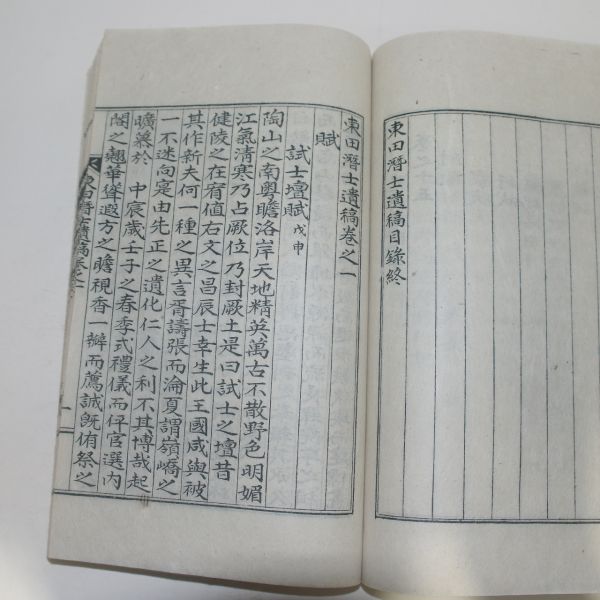 東田潛士遺稿目錄終
東田潛士遺稿卷之一
賦
試士壇賦 戊申
陶山之南粤瞻洛岸天地精英萬古不散野色明媚
江氣清寒乃占厥位乃封厥土是曰試士之壇昔
健陵之在宥値右文之昌辰士幸生此王國咸與被
其作新夫何一種之異言胥譸張而淪夏謂嶺嶠之
一不迷向寔由先正之遺化仁人之利不其博哉起
曠慕於 中宸歲壬子之春季式禮儀而伻官選內
閣之翹華聳遐方之瞻視香一瓣而薦誠旣侑祭之